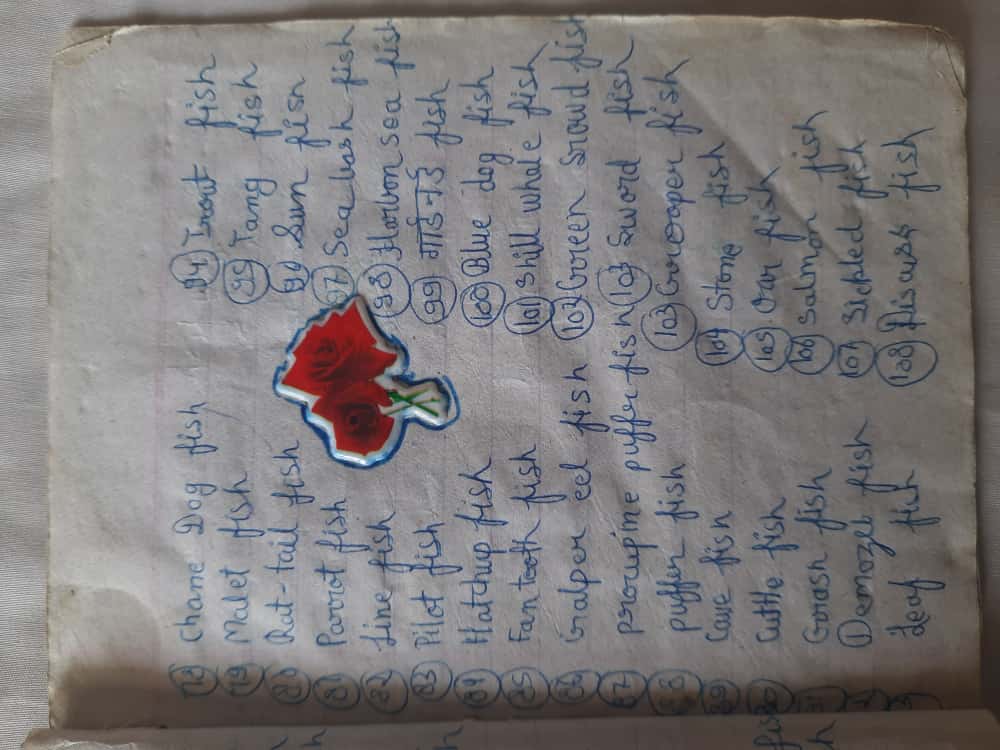 78 Chame Dog fish
79 Malet fish
80 Rat-tail fish
81 Parrot fish
82 Line fish
83 Pilot fish
84 Hatchup fish
85 Fantooth fish
86 Gralper eel fish
87 puffer fish
88 puffer fish
89 Cave fish
90 Cuttle fish
91 Grash fish
Demozel fish
leaf fish
94 Trout fish
95 Tang fish
96 Sun fish
97 Sea bash fish
98 Horbon sea fish
99 गार्ड-नर्ड fish
100 Blue dog fish
101 Skill whale fish
102 Green Sroud fish
102 Sword fish
103 Grooper fish
104 Stone fish
105 Oar fish
106 Salmon fish
107 Sickled fish
108 Discusk fish